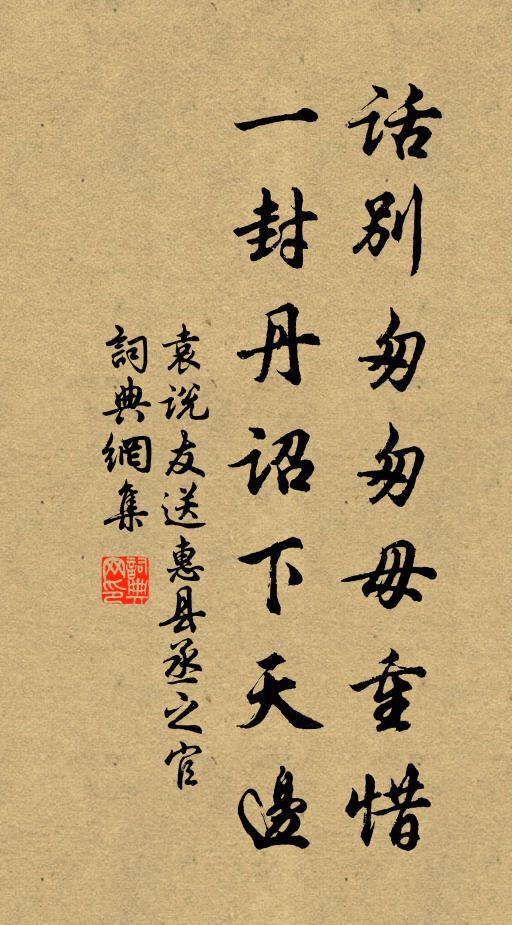 话别匆匆毋重惜
一封丹诏下天邊
袁说友送惠县丞之官
詞典網集
詞典網印